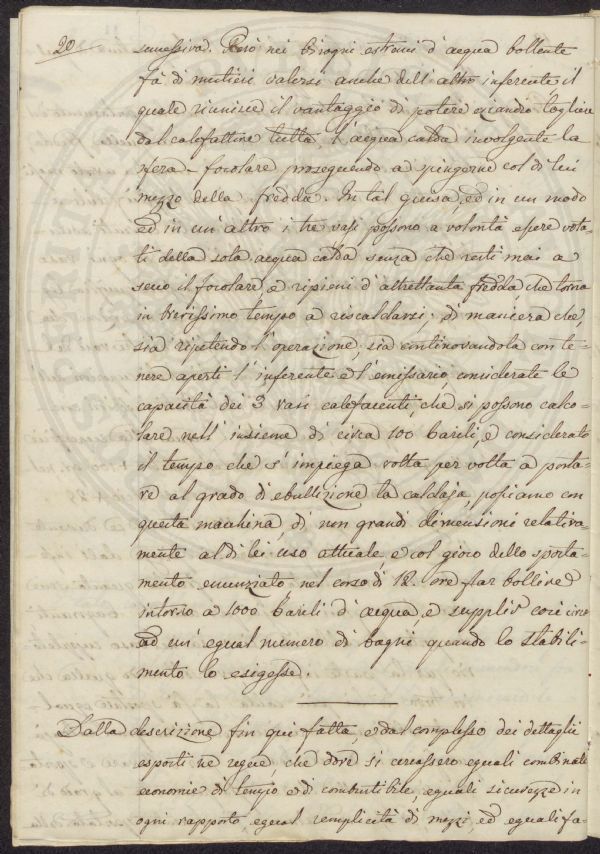 20
successiva. Però nei bisogni estremi d'acqua bollente
fà di mestieri valersi anche dell'altro inferente il
quale riunisce il vantaggio di potere eziandio togliere
dal calefattore tutta l'acqua calda involgente la
sfera-focolare proseguendo a spingerne col di lui
mezzo della fredda. In tal guisa, ed in un modo
ed in un'altro i tre vasi possono a volontà essere vota-
ti della sola acqua calda senza che resti mai a
secco il focolare e ripieni d'altrettanta fredda che torna
in brevissimo tempo a riscaldarsi; di maniera che,
sia ripetendo l'operazione, sia continovandola con te-
nere aperti l'inferente e l'emissario, considerate le
capacità dei 3 vasi calefacenti, che si possono calco-
lare nell'insieme di circa 100 barili, e considerato
il tempo che s'impiega volta per volta a porta-
re al grado di ebullizione la caldaja, possiamo con
questa macchina, di non grandi dimensioni relativa-
mente al di lei uso attuale, e col gioco dello sposta-
mento enunziato nel corso di 12. ore far bollire
intorno a 1000 barili d'acqua, e supplir così circa
ad un'egual numero di bagni quando lo stabili-
mento lo esigesse.
Dalla descrizione fin qui fatta, e dal complesso dei dettaglj
esposti ne segue, che dove si cercassero eguali combinate
economie di tempo e di combustibile, eguali sicurezze in
ogni rapporto, egual semplicità di mezzi, ed eguali fa-